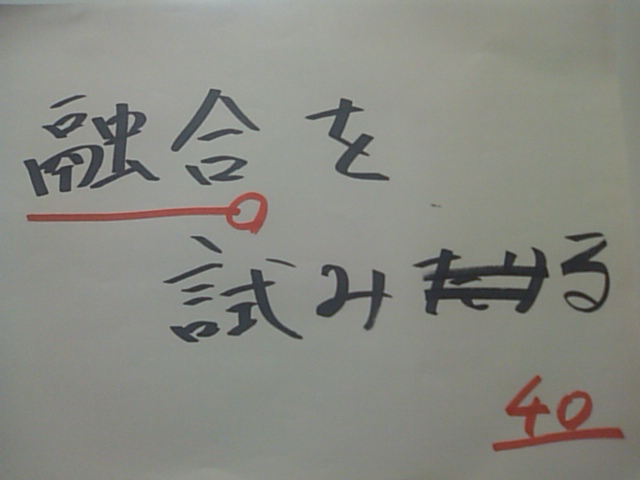 融合を
試みる
40